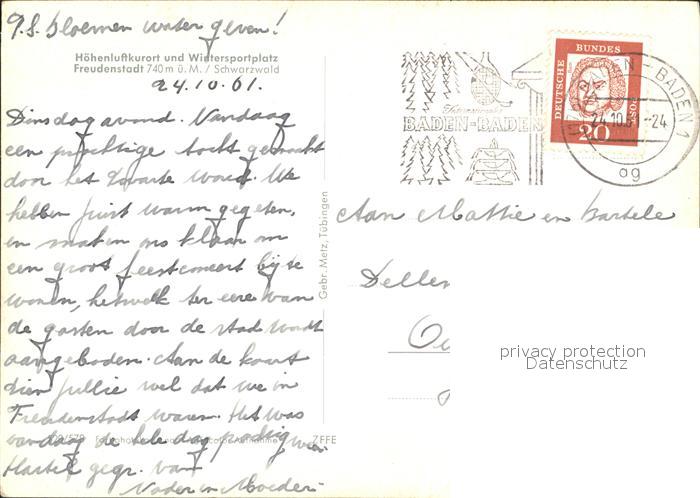 P.S. bloemen water geven!
Höhenluftkurort und Wintersportplatz
Freudenstadt 740 m ü. M. / Schwarzwald
24.10.61.
Dinsdagavond. Vandaag
een prachtige tocht gemaakt
door het Zwarte Woud. We
hebben juist warm gegeten,
en maken ons klaar om
een groot feestconcert bij te
wonen, hetwelk ter eere van
de gasten door de stad wordt
aangeboden. Aan de kaart
zien jullie wel dat we in
Freudenstadt waren. Het was
vandaag de hele dag prachtig weer
Hartel. gegr. van
Vader en Moeder.
Gebr. Metz, Tübingen
BADEN-BADEN
DEUTSCHE BUNDESPOST
20
BADEN-BADEN 1
24.10.61-24
ag
Aan Mattie en Bartele
Deller
privacy protection
Datenschutz